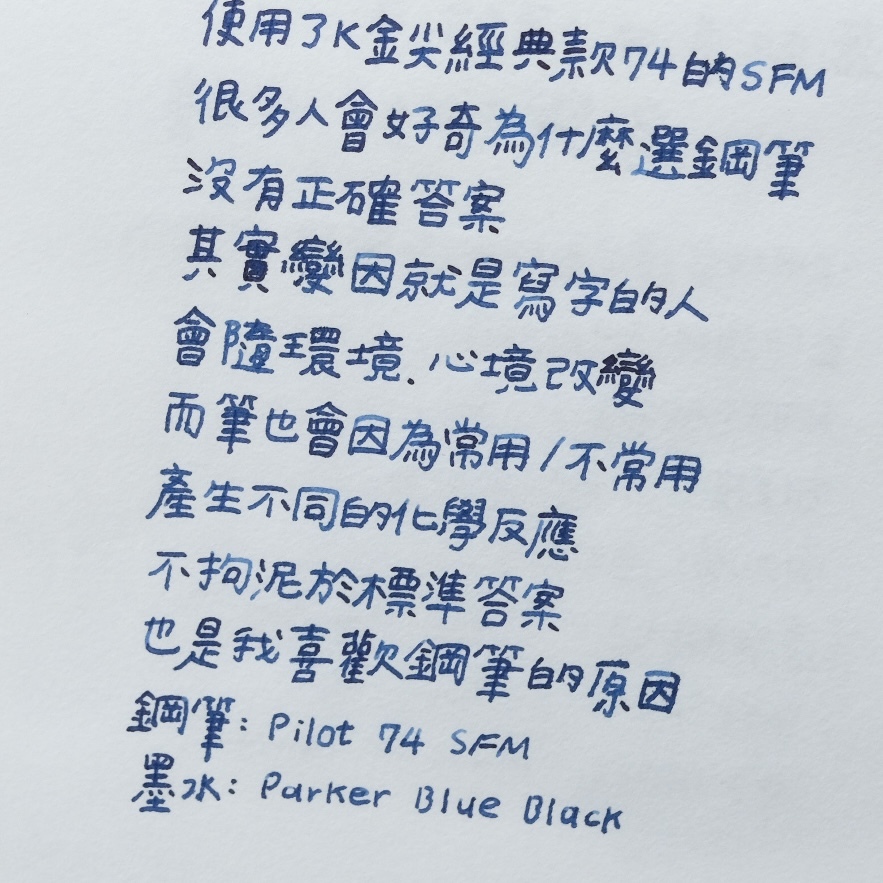 使用了K金尖經典款74的SFM
很多人會好奇為什麼選鋼筆
沒有正確答案
其實變因就是寫字的人
會隨環境.心境改變
而筆也會因為常用/不常用
產生不同的化學反應
不拘泥於標準答案
也是我喜歡鋼筆的原因
鋼筆: Pilot 74 SFM
墨水: Parker Blue Black